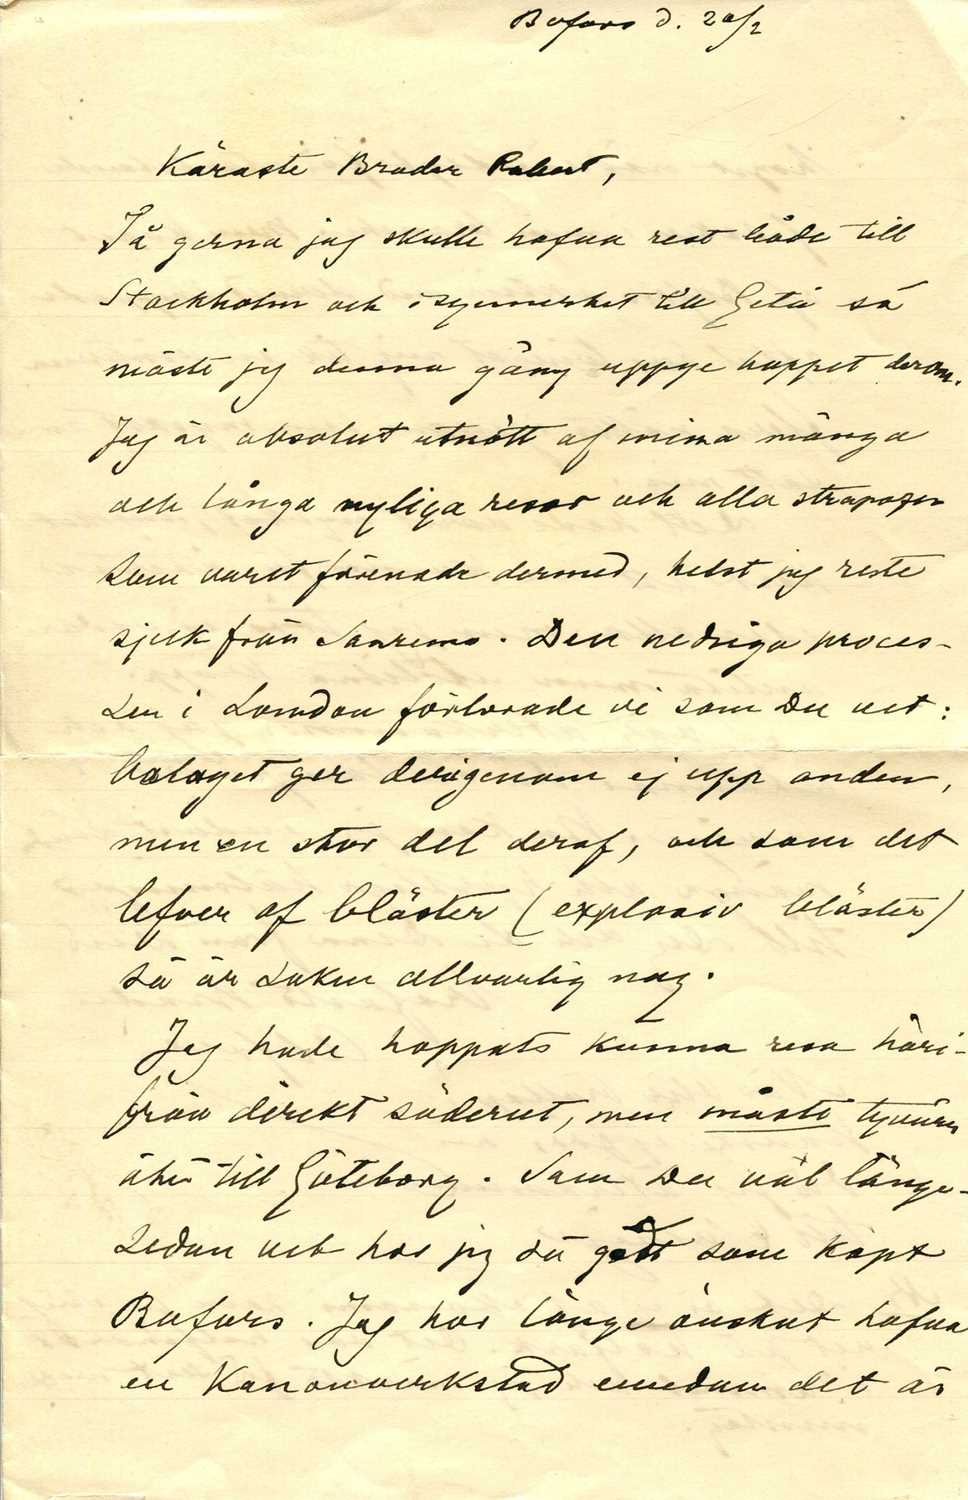 Bofors d. 20/2
Käraste Broder Robert,
Så gerna jag skulle hafva rest både till
Stockholm och isynnerhet till Getå så
måste jag denna gång uppge hoppet derom.
Jag är absolut utnött af mina många
och långa nyliga resor och alla strapazer
som varit förenade dermed, helst jag reste
sjuk från Sanremo. Den nedriga proces-
sen i London förlorade vi som Du vet:
bolaget ger derigenom ej upp andan,
men en stor del deraf, och som det
lefver af bläster (explosiv bläster)
så är saken allvarlig nog.
Jag hade hoppats kunna resa häri-
från direkt söderut, men måste tyvärr
åter till Göteborg. Som Du väl länge-
sedan vet har jag så godt som köpt
Bofors. Jag har länge önskat hafva
en Kanonverkstad emedan det är